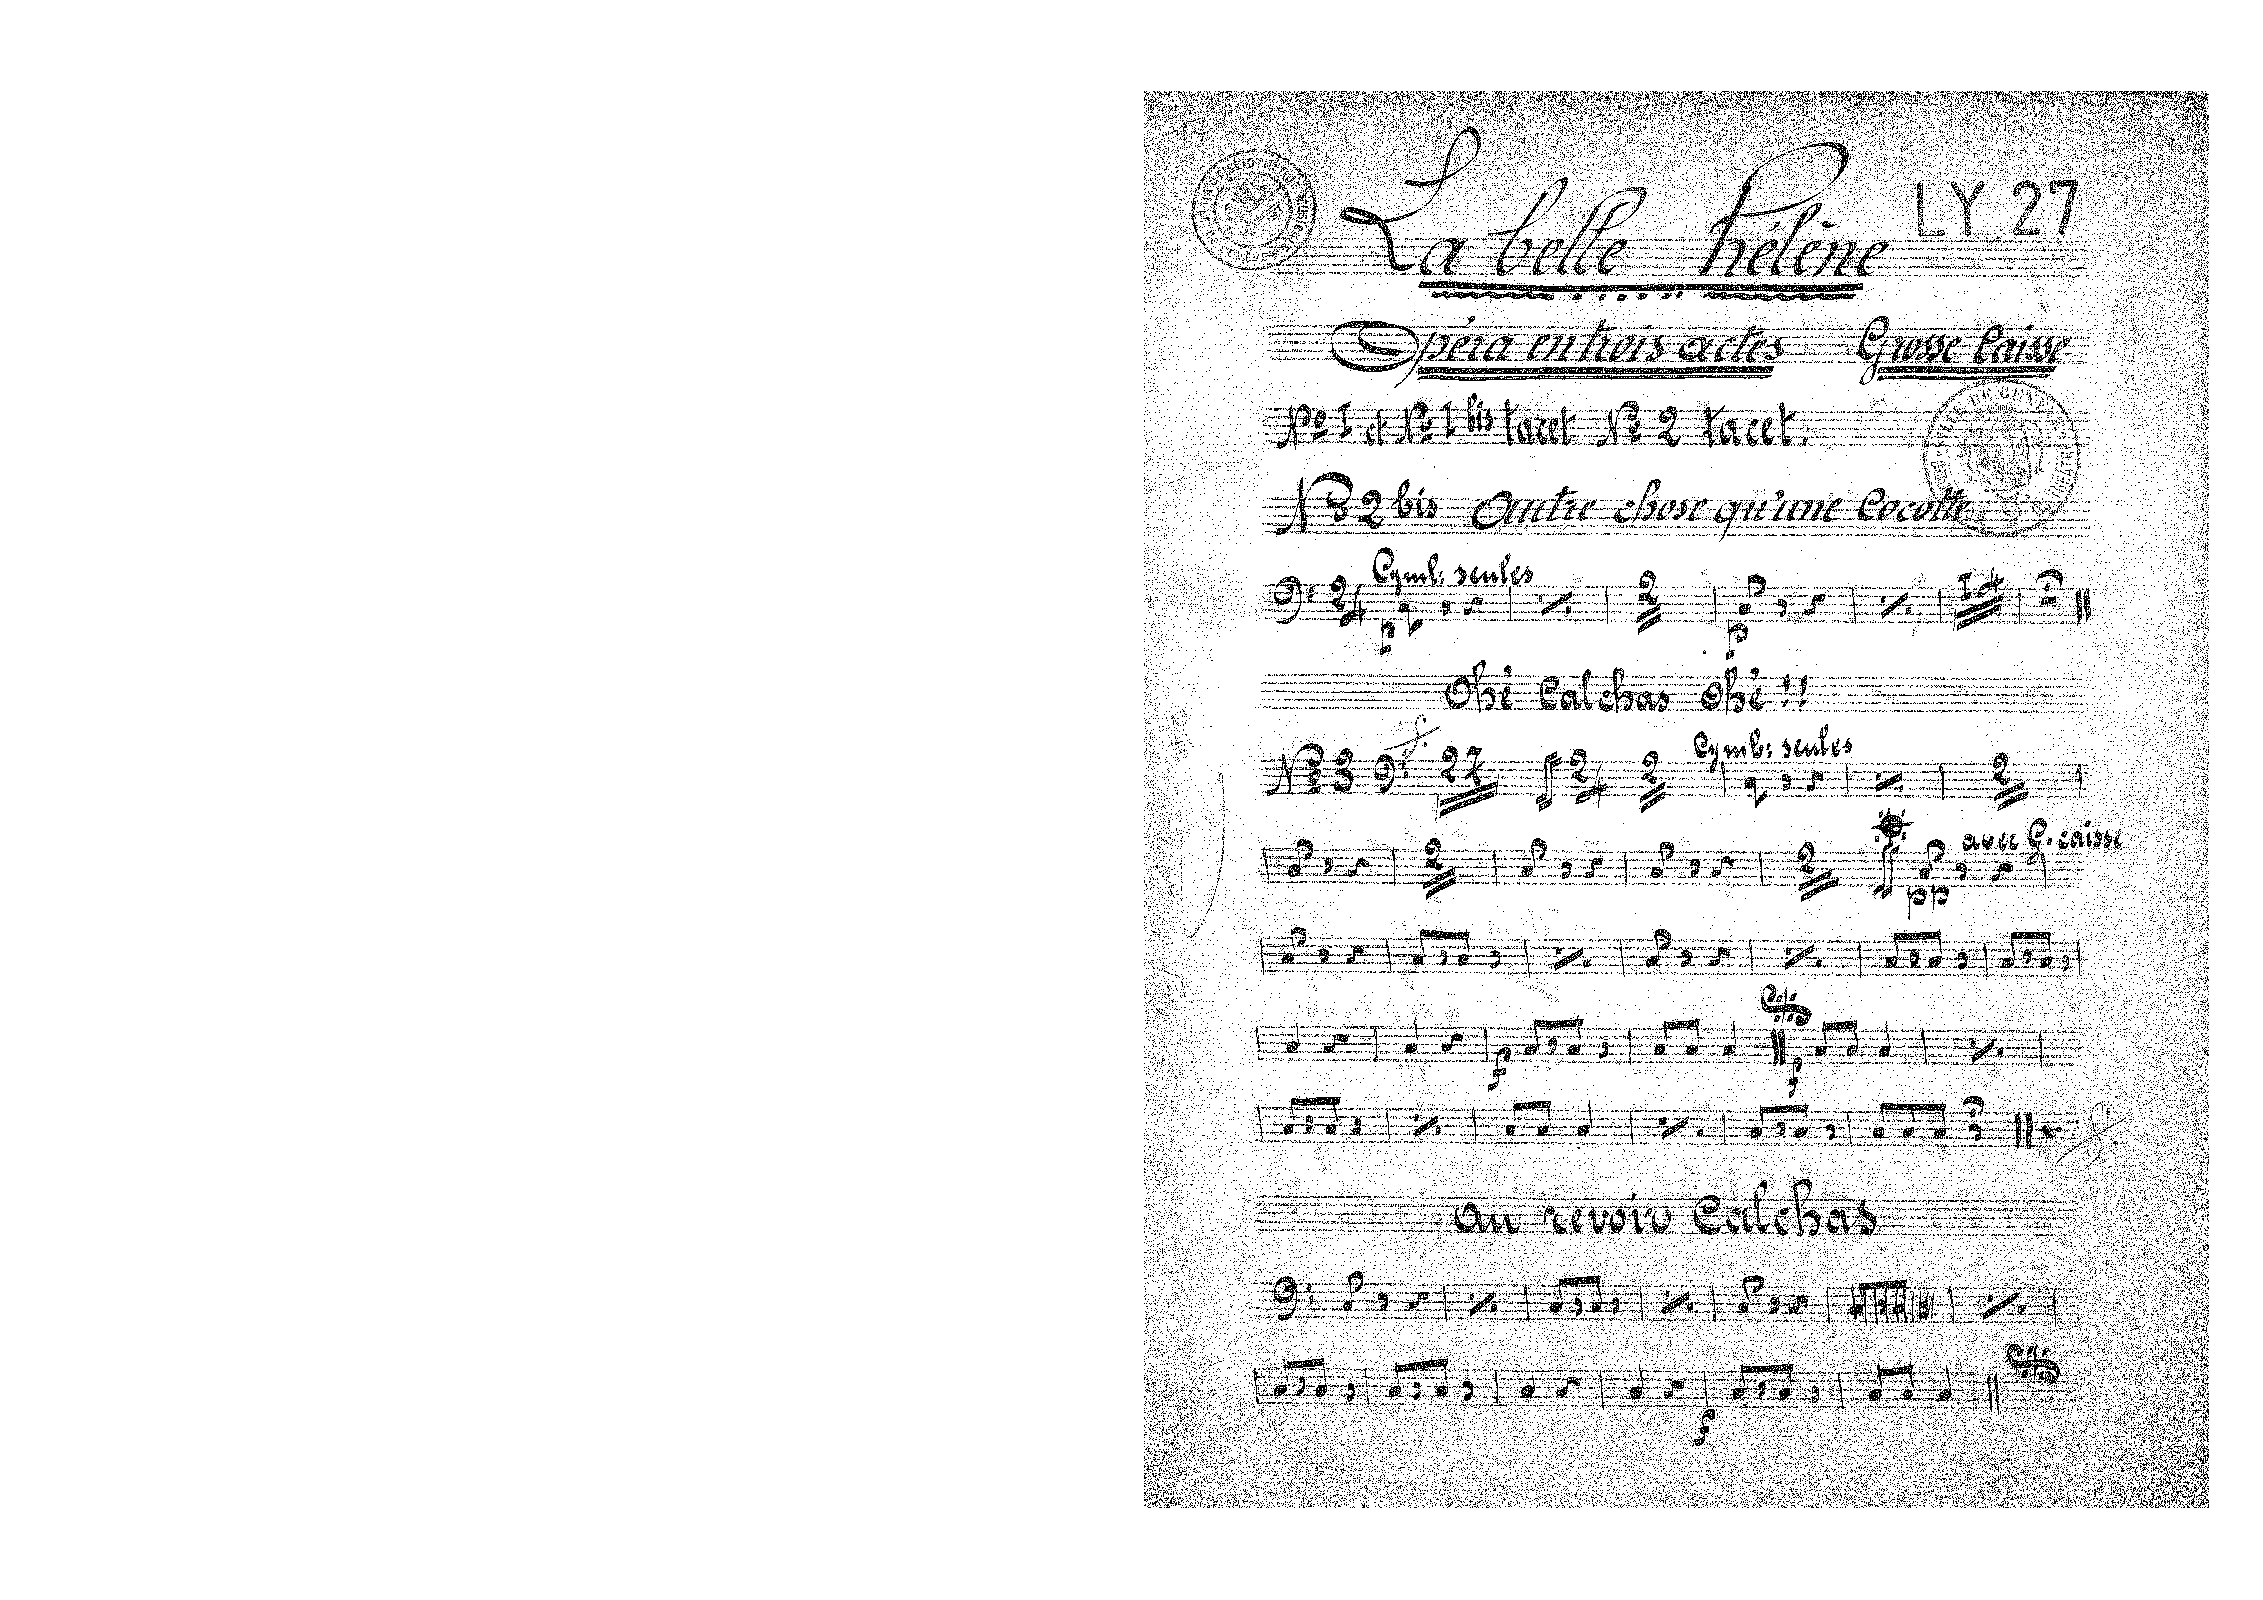 La belle Hélène LY 27
Opéra en trois actes Grosse Caisse
Nº I et Nº I bis tacet Nº 2 tacet.
Nº 2 bis Autre chose qu'une Cocotte
Cymb: seules
2 4 2 14
p p
Ohé Calchas Ohé !!
Cymb: seules
Nº 3 27 2 4 2 2
avec G. caisse
2 2
pp
f f
Au revoir Calchas
f